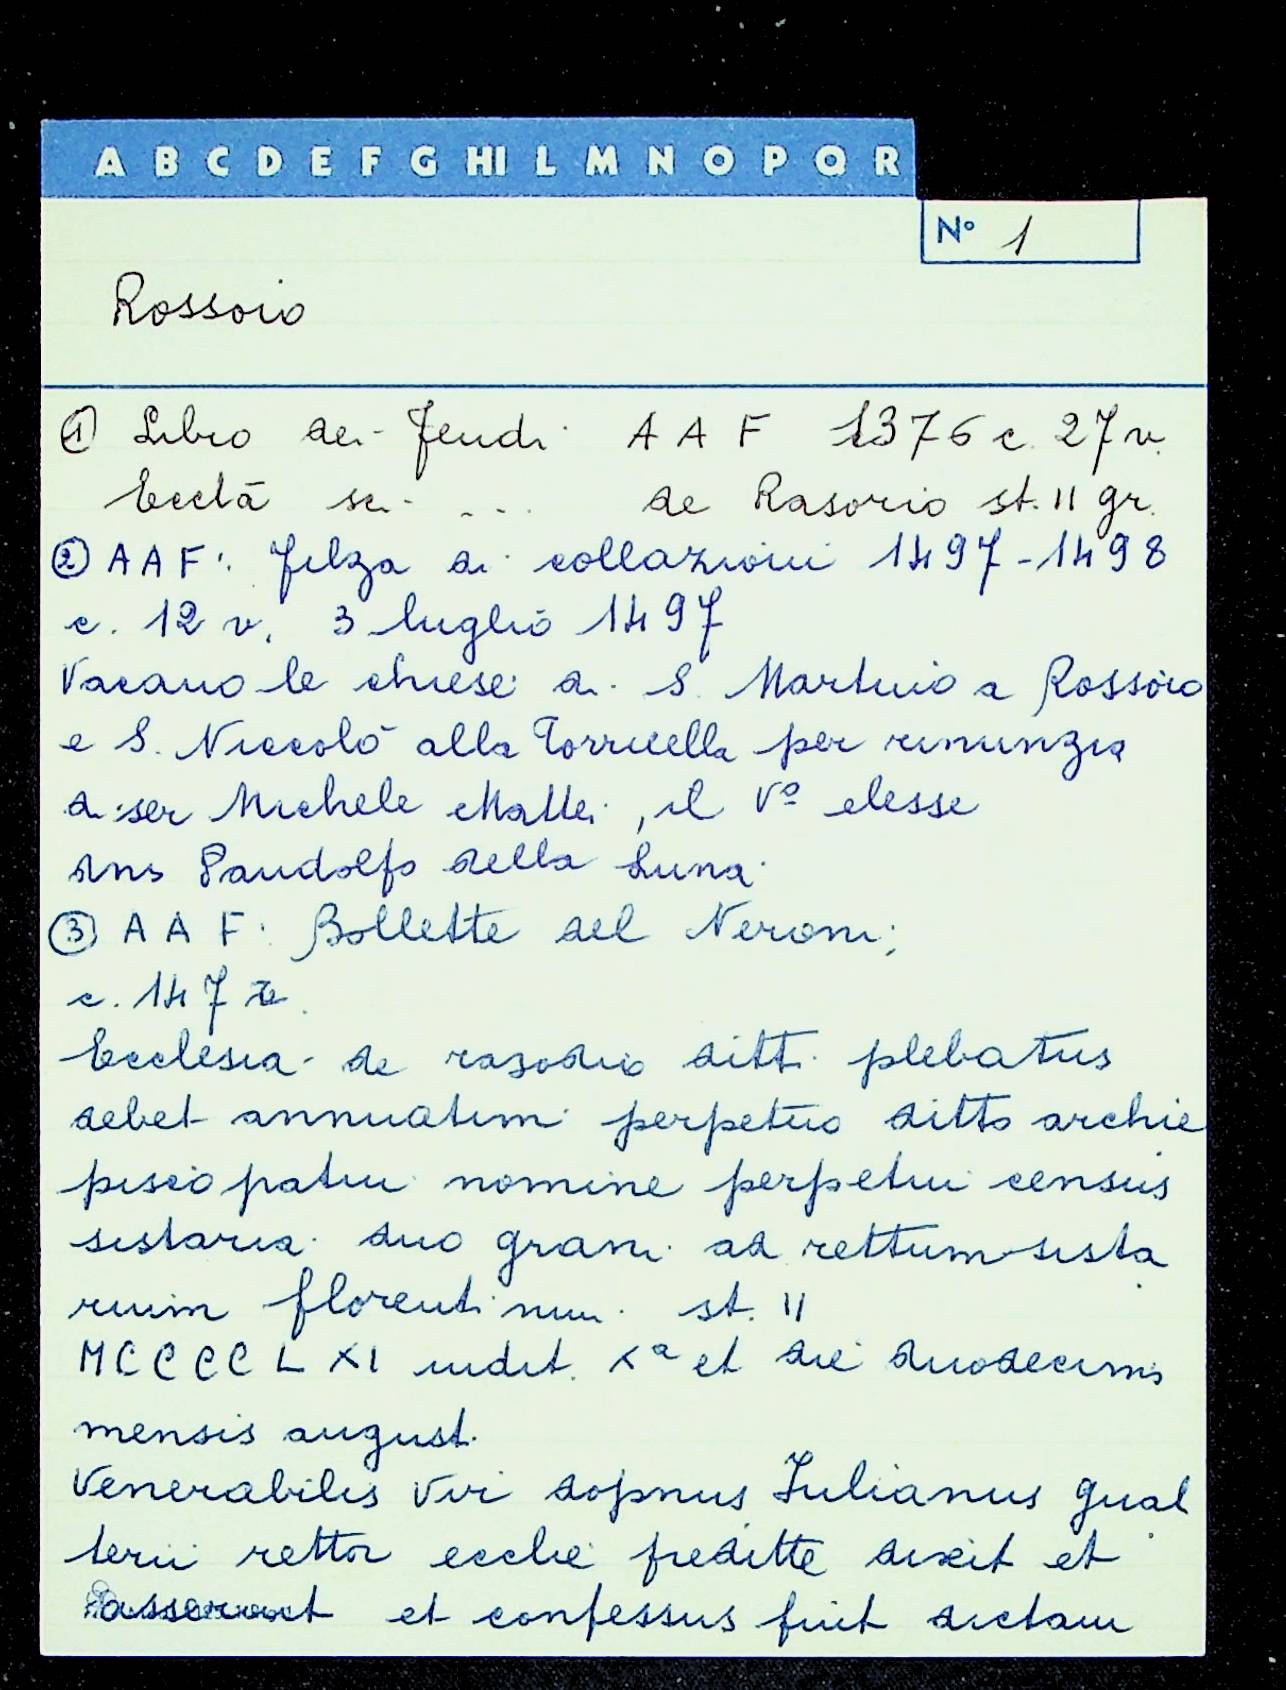 A B C D E F G HI L M N O P Q R
N° 1
Rossoio
① Libro dei Feudi AAF 1376 c. 27 v.
Ecclā sci ... de Rasorio st. II gr.
② AAF: Filza di collazioni 1497-1498
c. 12 v. 3 luglio 1497
Vacano le chiese di S. Martino a Rossoio
e S. Niccolò alla Torricella per rinunzia
di ser Michele Mattei, il Vº elesse
dns Pandolfo della Luna
③ AAF: Bollette del Neroni;
c. 147
Ecclesia de rasodio ditti plebatus
debet annuatim perpetuo ditto archie
piscopatui nomine perpetui census
sistaria duo grani ad rettum sista
rium florentinum st. II
MCCCCLXI indit. Xª et die duodecimo
mensis august.
Venerabilis Vir dopnus Iulianus gual
terii rettor ecclie preditte dixit et
asseruit et confessus fuit dictam